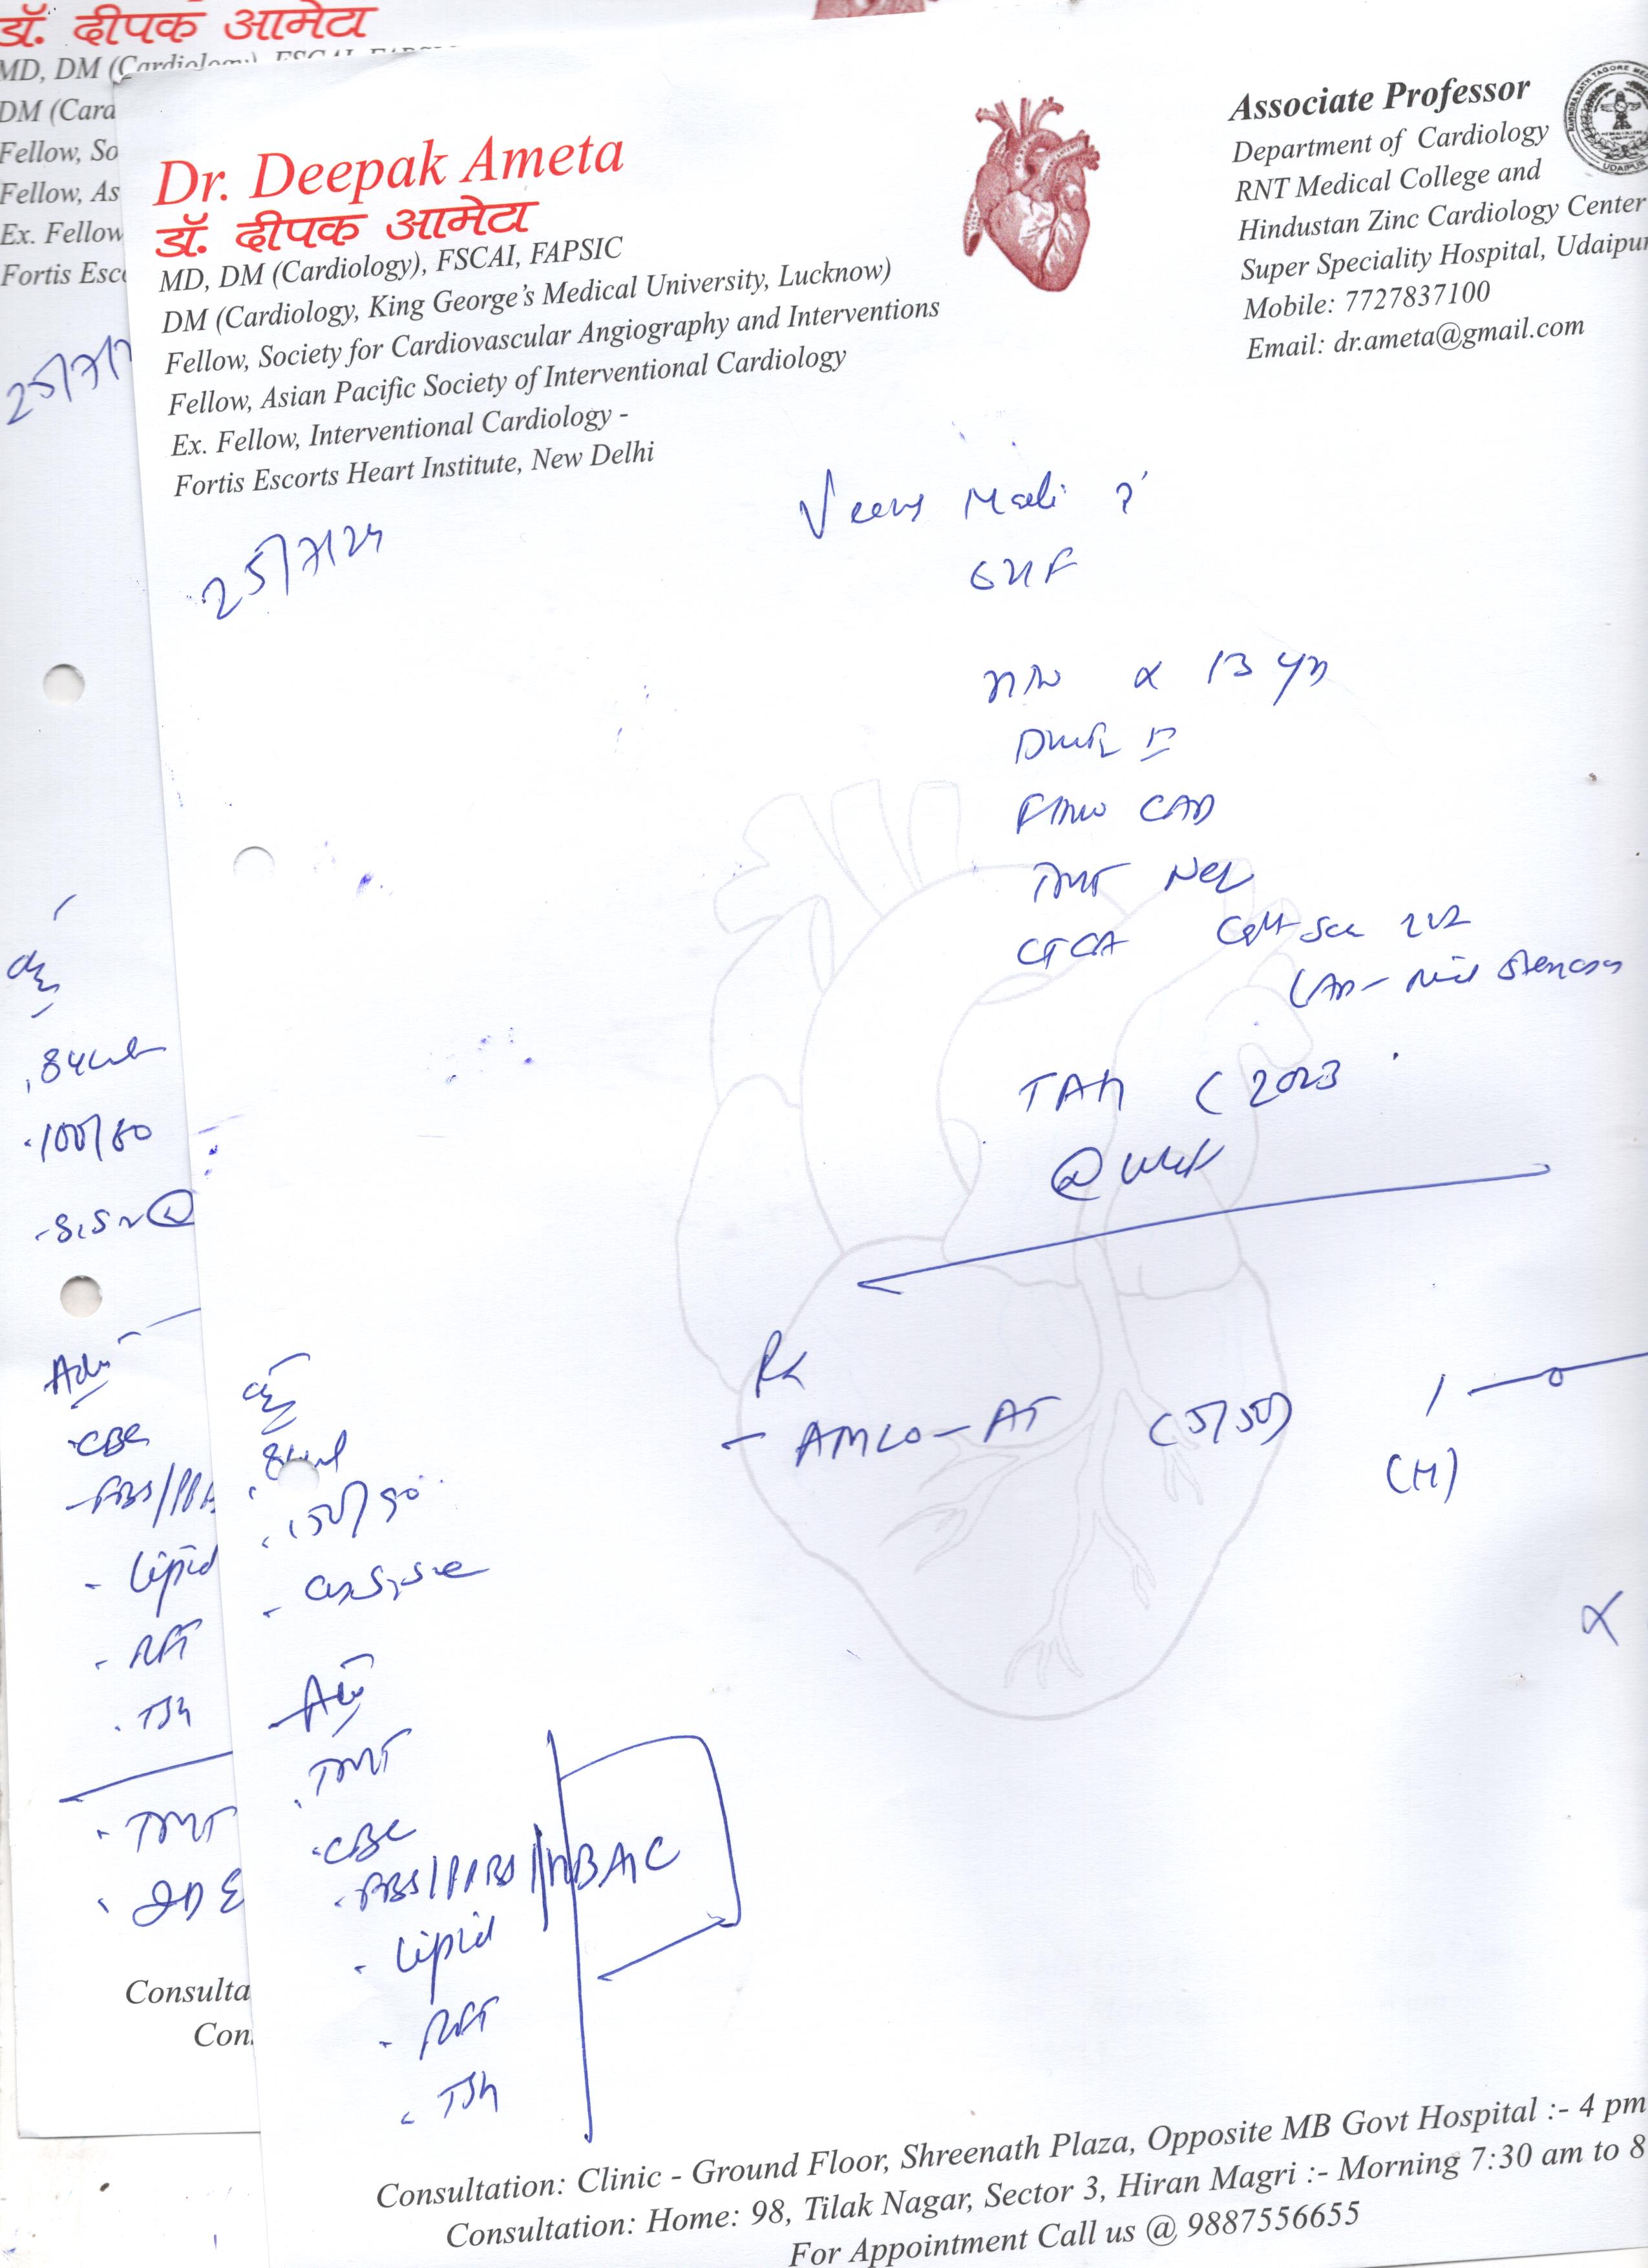 डॉ. दीपक आमेटा
MD, DM (Cardiology), FSCAI,
DM (Card
Fellow, So
Fellow, As
Ex. Fellow
Fortis Esc
25/7/2
.100/80
Adv
-CBC
-FBS/PPB
- Lipid
- RFT
. TSH
. TMT
. 2D E
Consulta
Con
Dr. Deepak Ameta
डॉ. दीपक आमेटा
MD, DM (Cardiology), FSCAI, FAPSIC
DM (Cardiology, King George's Medical University, Lucknow)
Fellow, Society for Cardiovascular Angiography and Interventions
Fellow, Asian Pacific Society of Interventional Cardiology
Ex. Fellow, Interventional Cardiology -
Fortis Escorts Heart Institute, New Delhi
Associate Professor
Department of Cardiology
RNT Medical College and
Hindustan Zinc Cardiology Center
Super Speciality Hospital, Udaipur
Mobile: 7727837100
Email: dr.ameta@gmail.com
25/7/24
α 13 yrs
CAD
TMT Neg
CTCA
LAD - Mild stenosis
TAH (2023
Rx
- AMLO-AT (5/50) 1
(H)
. 150/90
Adv
. TMT
.CBC
. FBS/PPBS/HBA1C
- Lipid
- RFT
. TSH
Consultation: Clinic - Ground Floor, Shreenath Plaza, Opposite MB Govt Hospital :- 4 pm
Consultation: Home: 98, Tilak Nagar, Sector 3, Hiran Magri :- Morning 7:30 am to 8
For Appointment Call us @ 9887556655